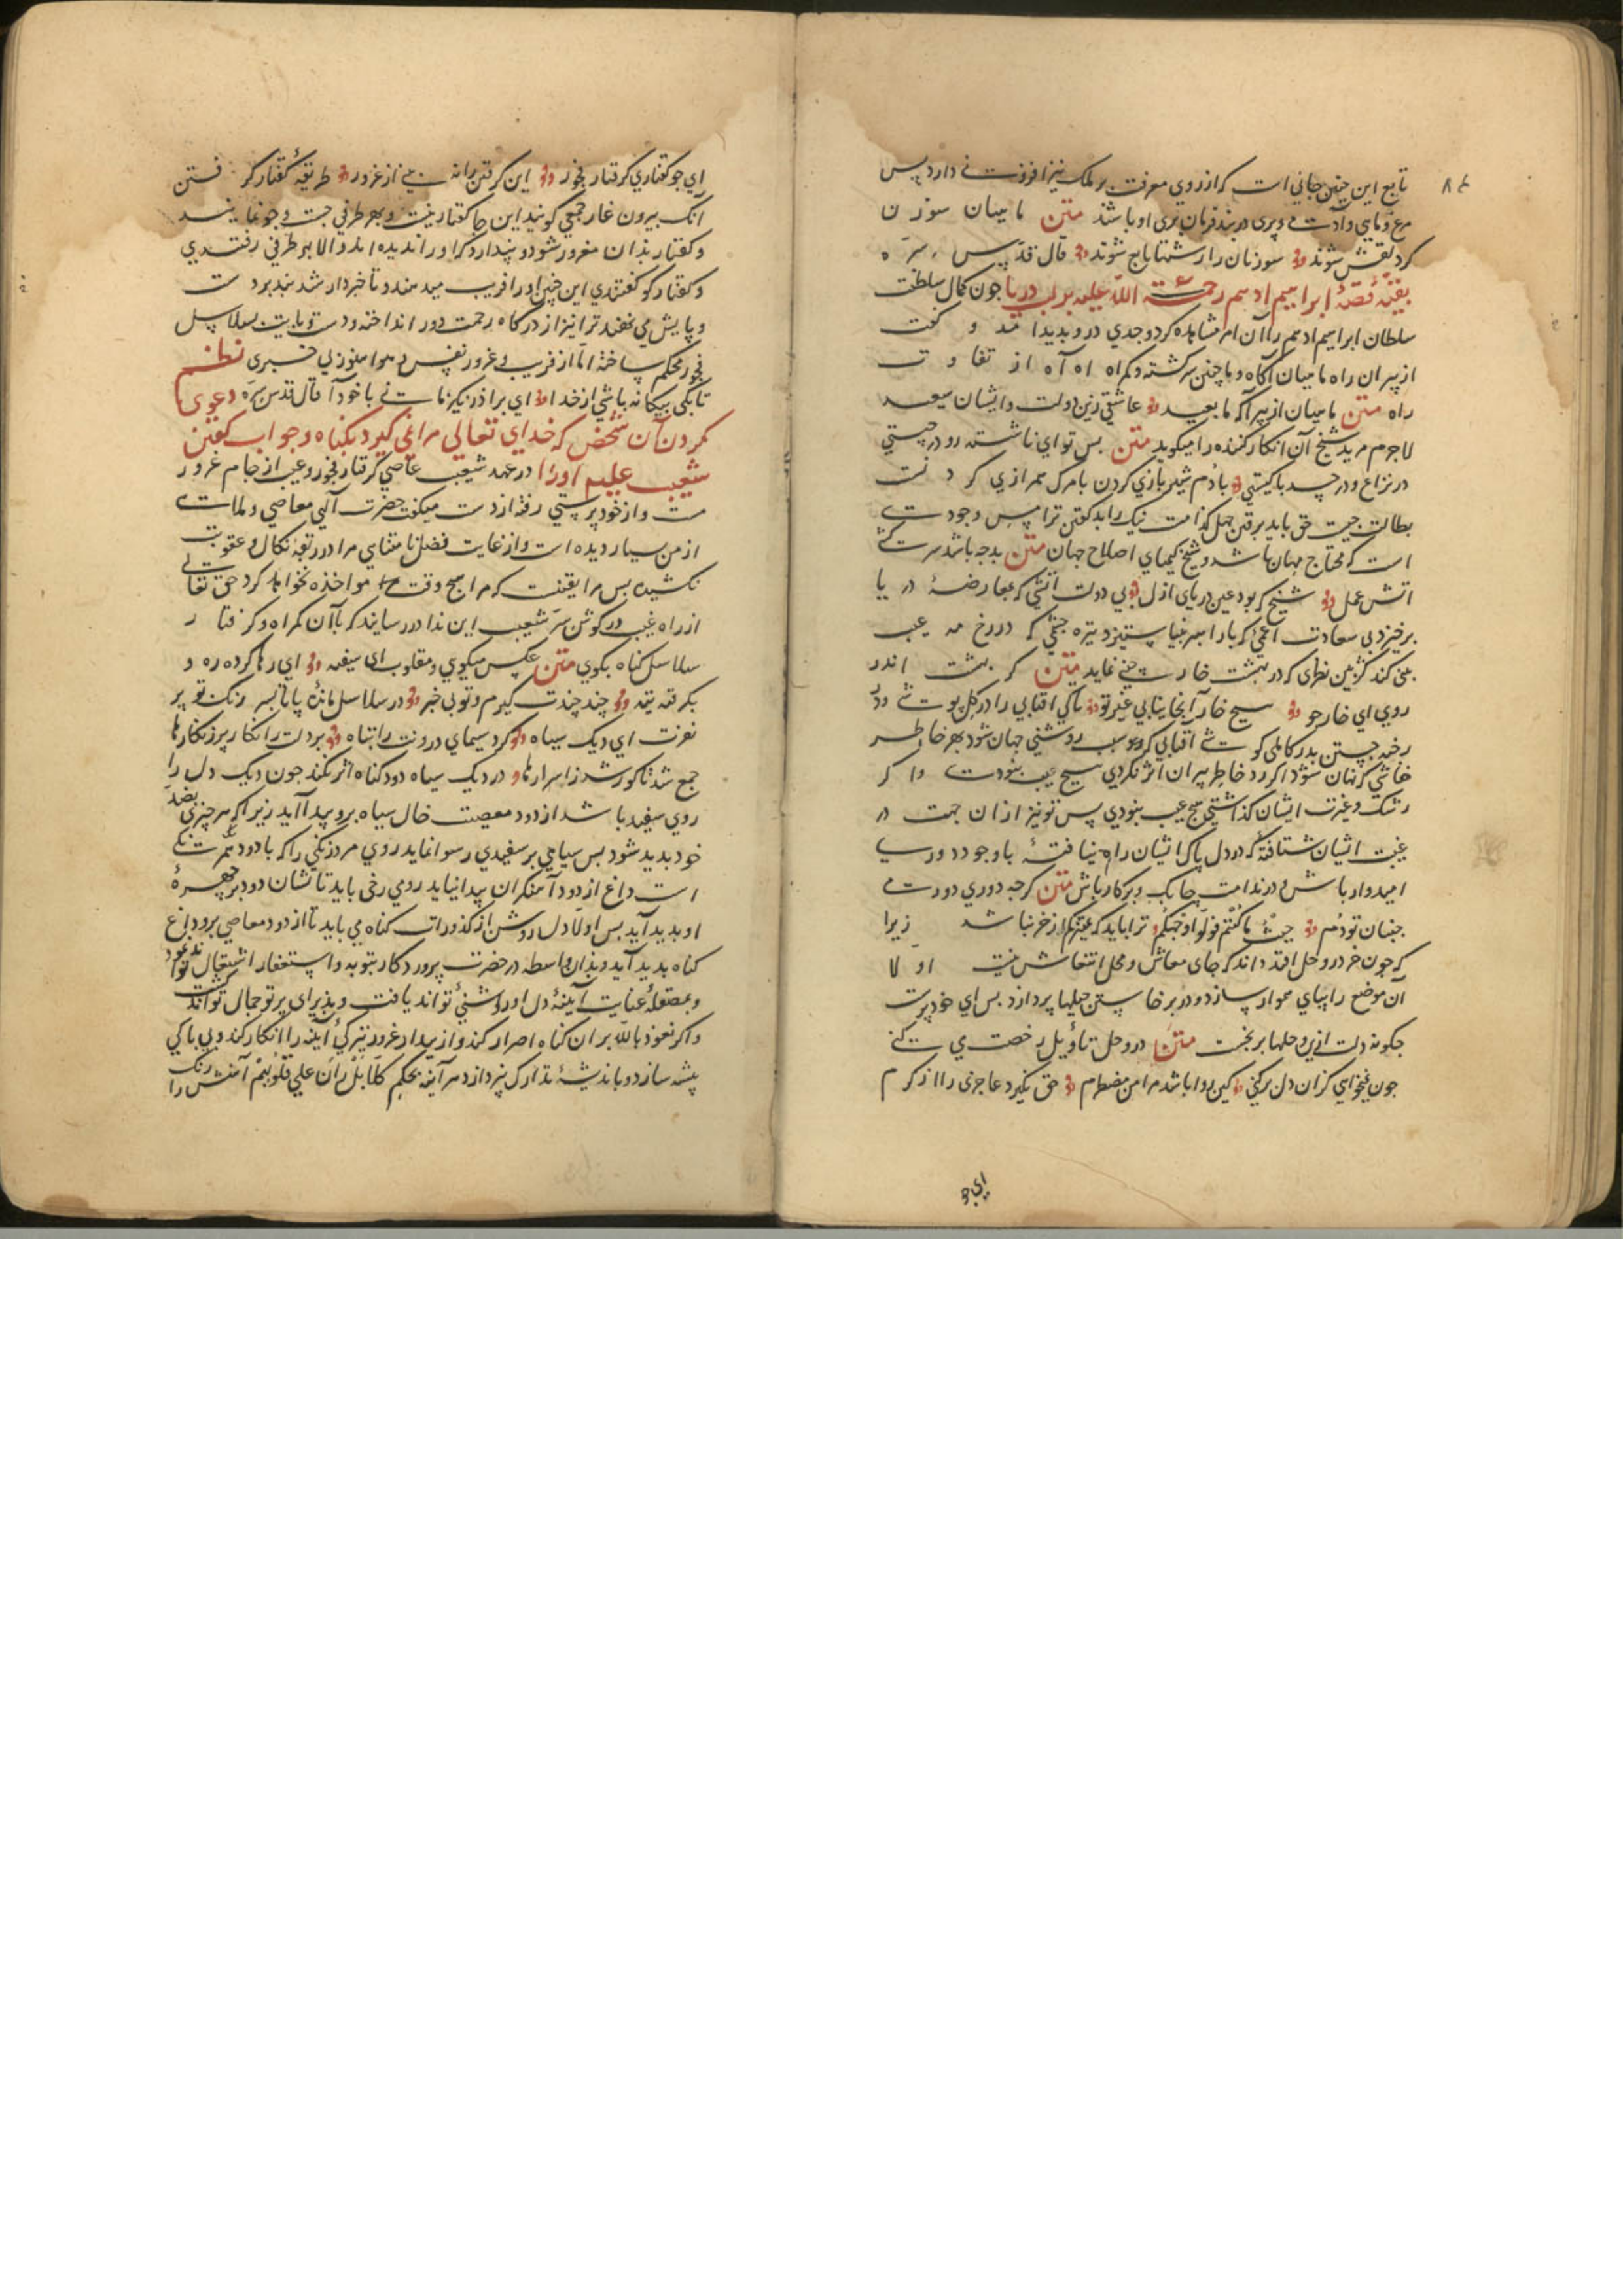 تابع این چنین جانی است که از روی معرفت بر ملک نیز افزونی دارد پس
مرغ و ماهی و آدمی و پری در بند فرمان بری او باشند متن ماهیان سوزن
کرد لقش شوند سوزنان را رشتها تابع شوند قال قدس سره
بقیه قصهٔ ابراهیم ادهم رحمة الله علیه بر لب دریا جون کمال سلطنت
سلطان ابراهیم ادهم را آن امر مشاهده کرد وجدی درو بدید آمد و گفت
از پیران راه ماهیان آگاه و ما چنین سرگشته و گمراه اه آه از تفاوت
راه متن ماهیان از پیر آگه ما بعید عاشقی زین دولت و ایشان سعید
لاجرم مرید شیخ آن انکار کننده را میگوید متن بس تو ای ناشسته رو در چیستی
در نزاع و در حسد با کیستی با دم شیر بازی کردن با مرگ همرازی کردنست
است که محتاج مهان باشد و شیخ کیمیای اصلاح جهان متن بدجه باشد سرکشی
آتش عمل شیخ که بود عین دریای ازل بی دولت آتشی که بمعارضهٔ دریا
برخیزد بی سعادت که با را ستیزد تیره چشمی که در رخ مه عیب
بینی کند کژبین نظری که در بهشت خار چینی نماید متن گر بهشت اندر
روی ای خارجو هیچ خار آنجا نیابی غیر تو تا کی افتابی را در گل پوشی و در
رخنه جستن بدر کاملی کوشی آفتابی که روشنی جهان شود بهر خاطر
خفاشی کی نهان شود اگر رد خاطر پیران اثر نکردی هیچ عیب نبودی و اگر
رشک و غیرت ایشان گذاشتی هیچ عیب نبودی پس تو نیز از آن جهت در
عیب ایشان شتافتهٔ که در دل پاک ایشان راه نیافتهٔ با وجود دوری
امیدوار باش و در ندامت چابک و بر کار باش متن گرجه دوری دور می
جنبان تو دم حیث ما کنتم فولوا وجهکم ترا باید که عزمت کم از خر نباشد زیرا
که جون خر در وحل افتد داند که جای معاش و محل انتعاش نیست اولا
آن موضع را بپای هموار سازد و در برخاستن حیلها پردازد بس ای خود پرست
جگونه دلت ازین وحلها برنخست متن در وحل تاویل رخصت می کنی
جون نمیخواهی کزان دل برکنی کین روا باشد مرا من مضطرم حق نگیرد عاجزی را از کرم
ای جو
ای جو کفتاری گرفتار فجور این گرفتن را نه بینی از غرور طریقهٔ کفتار گرفتن
آنک بیرون غار جمعی گویند این جا کفتار نیست و بهر طرفی جست و جو نمایند
و کفتار بدان مغرور شود و پندارد که او را ندیده اند و الا بهر طرفی رفتندی
و کفتار کو گفتندی این چنین او را فریب میدهند و تا خبردار شد بند بر دست
و پایش می نهند ترا نیز از درگاه رحمت دور انداخته و دست و پایت بسلاسل
فجور محکم ساخته اما از فریب و غرور نفس و هوا هنوز بی خبری نظم
تا بکی بیگانه باشی از خدا ای برادر یکزمانی با خود آ قال قدس سره دعوی
کردن آن شخص که خدای تعالی مرا نمی گیرد بگناه و جواب گفتن
شعیب علیهم او را در عهد شعیب عاصی گرفتار فجور و عیب از جام غرور
مست و از خود پرستی رفته از دست میگفت حضرت الهی معاصی و ملاهی
از من بسیار دیده است و از غایت فضل نا متناهی مرا در ربقهٔ نکال و عقوبت
نکشیده بس مرا یقینست که مرا هیچ وقت مواخذه نخواهد کرد حق تعالی
از راه غیب در گوش سر شعیب این ندا در رسانید که با آن گمراه و گرفتار
سلاسل گناه بگوی متن عکس میگوی و مقلوب ای سفیه ای رها کرده ره و
بگرفته تیه چند چندت گیرم و تو بی خبر در سلاسل ماندهٔ پا تا بسر زنگ تو بر
تویت ای دیک سیاه کرد سیمای درونت را تباه بر دلت زنگار بر زنگارها
جمع شد تا کور شد ز اسرارها در دیک سیاه دود گناه اثر نکند جون دیک دل را
روی سفید باشد از دود معصیت خال سیاه برو پیدا آید زیرا که هر چیزی بضد
خود بدید شود بس سیاهی بر سفیدی رسوا نماید روی مرد زنگی را که با دود همرنگی
است داغ از دود آهنگران پیدا نیاید رومی رخی باید تا نشان دود بر چهرهٔ
او بدید آید بس اولا دل روشن از کدورات گناه می باید تا از دود معاصی برو داغ
گناه بدید آید و بدان واسطه در حضرت پروردگار بتوبه و استغفار اشتغال تواند نمود
و بمصقلهٔ عنایت آیینهٔ دل او روشنی تواند یافت و پذیرای پرتو جمال تواند گشت
و اگر نعوذ بالله بر آن گناه اصرار کند و از پندار غرور تیرگی آینه را انکار کند و بی باکی
پیشه سازد و باندیشهٔ تدارک نپردازد هر آینه بحکم کلا بل ران علی قلوبهم آهنش را زنگ